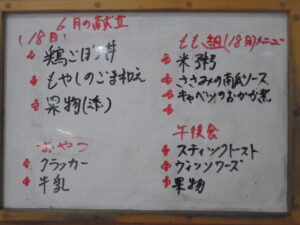 6月の献立
(18日)
鶏ごぼう丼
もやしのごま和え
果物
おやつ
クラッカー
牛乳
もも組(18日)メニュー
米粥
ささみの南瓜ソース
キャベツのおかか煮
午後食
スティックトースト
ウィンナーソーズ
果物